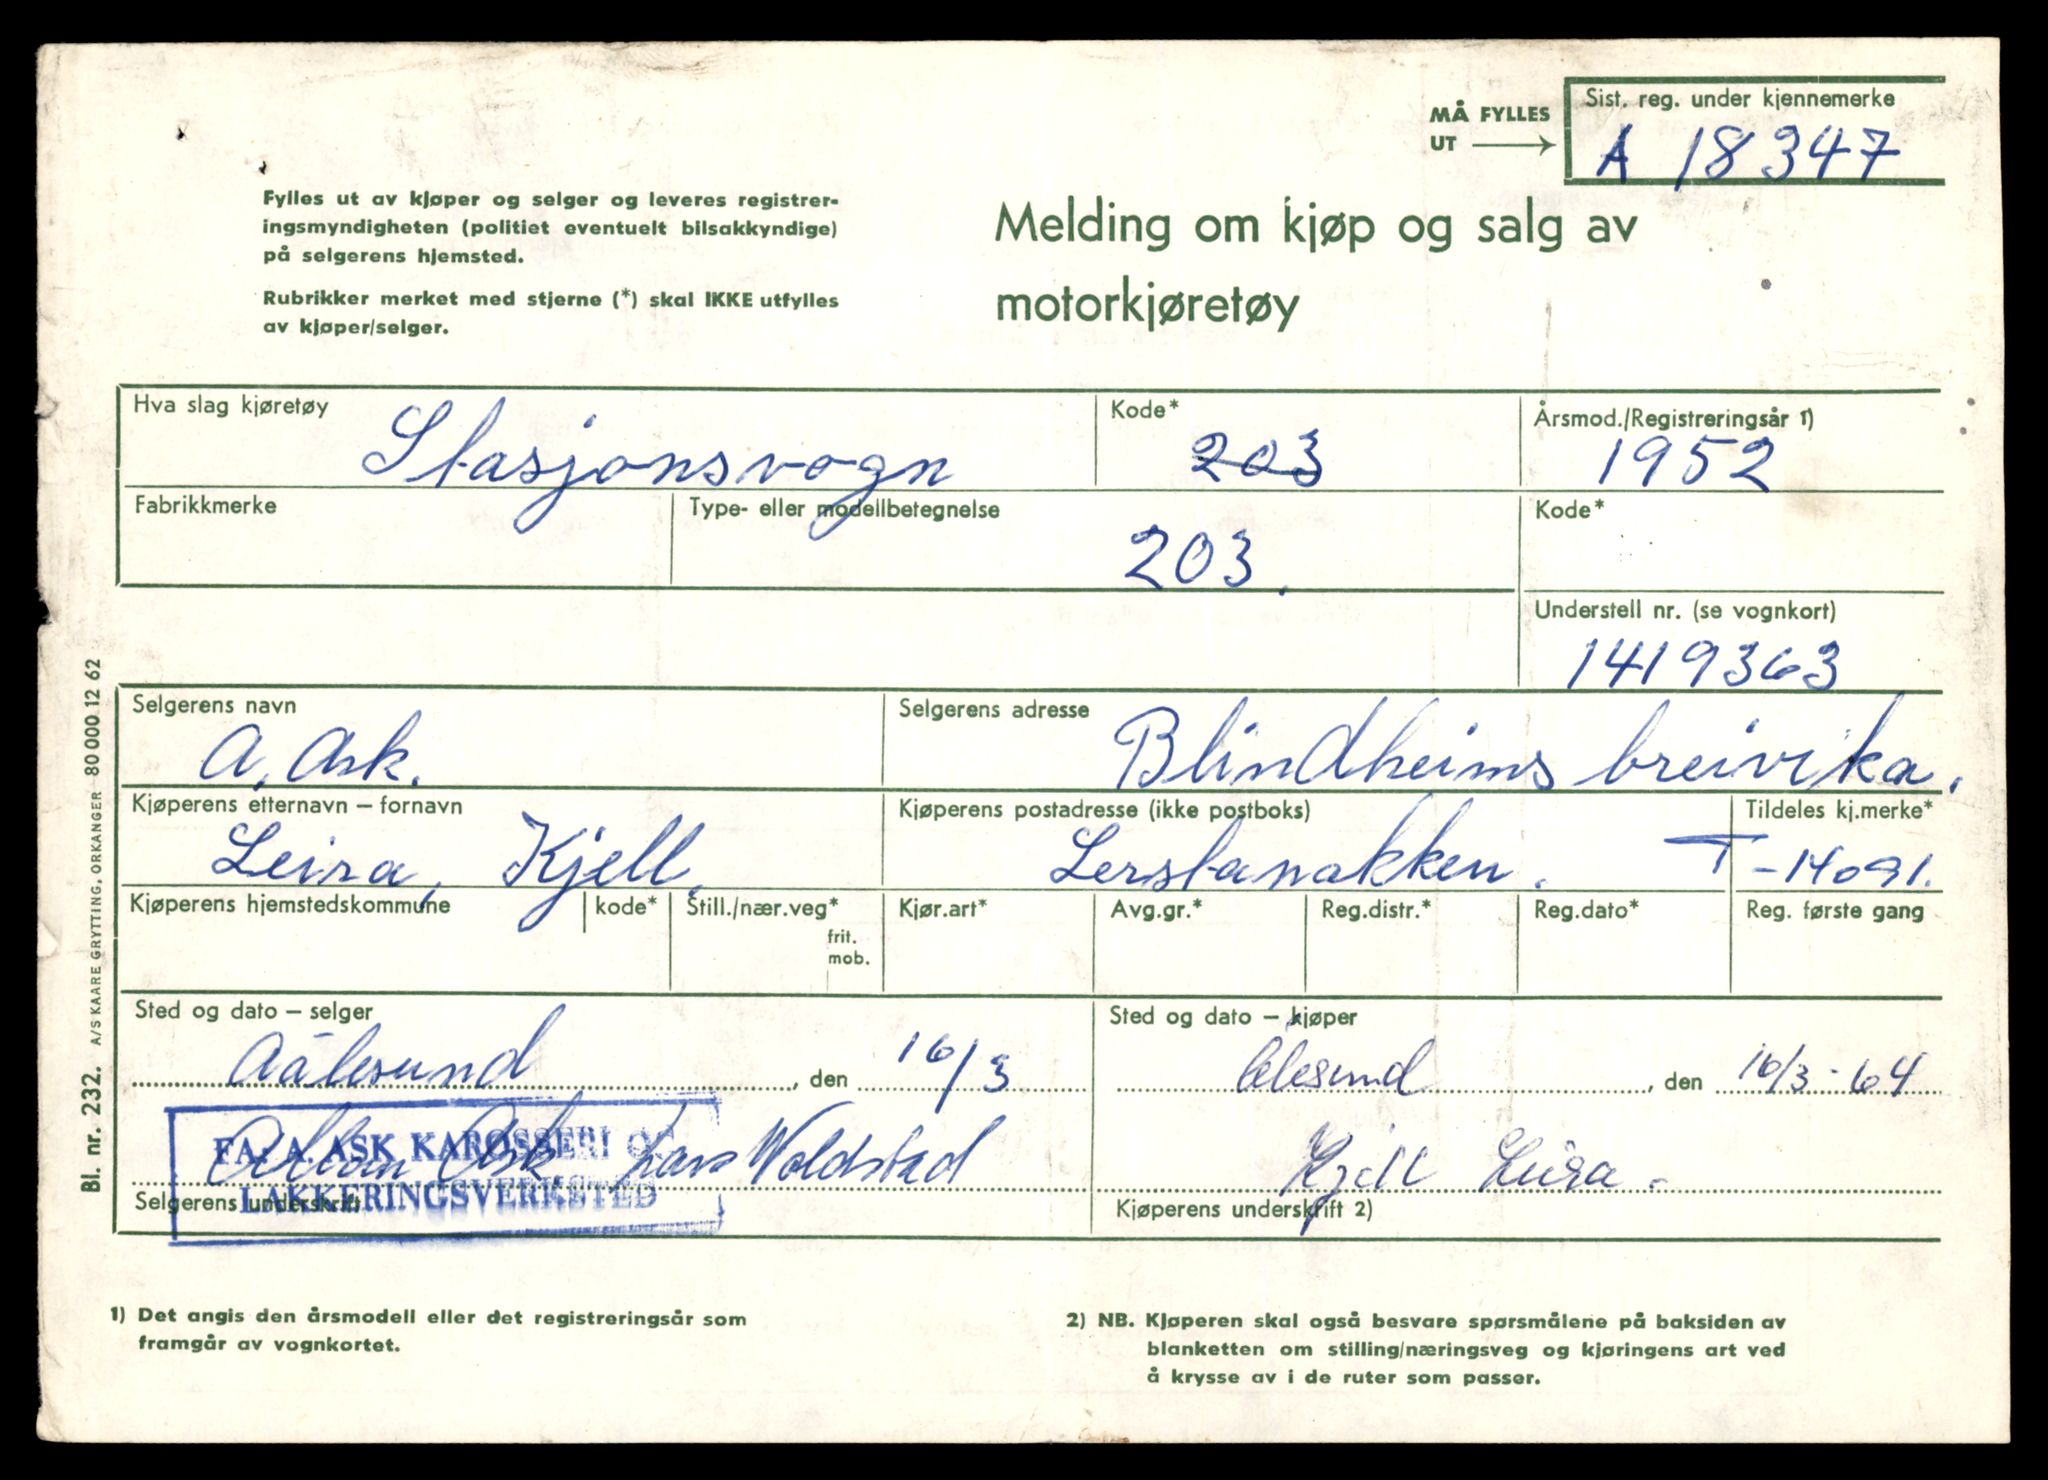 MÅ FYLLES
UT
Sist. reg. under kjennemerke
A 18347
Fylles ut av kjøper og selger og leveres registrer-
ingsmyndigheten (politiet eventuelt bilsakkyndige)
på selgerens hjemsted.
Rubrikker merket med stjerne (*) skal IKKE utfylles
av kjøper/selger.
Melding om kjøp og salg av
motorkjøretøy
Hva slag kjøretøy
Stasjonsvogn
Kode*
203
Årsmod./Registreringsår 1)
1952
Fabrikkmerke
Type- eller modellbetegnelse
203.
Kode*
Understell nr. (se vognkort)
1419363
Selgerens navn
A. Ask.
Selgerens adresse
Blindheims breivika.
Kjøperens etternavn – fornavn
Leira, Kjell.
Kjøperens postadresse (ikke postboks)
Lerstanakken.
Tildeles kj.merke*
T-14091.
Kjøperens hjemstedskommune
kode*
Still./nær.veg*
frit.
mob.
Kjør.art*
Avg.gr.*
Reg.distr.*
Reg.dato*
Reg. første gang
Sted og dato – selger
Aålesund, den 16/3
Sted og dato – kjøper
Ålesund, den 16/3-64
FA. A. ASK KAROSSERI OG
LAKKERINGSVERKSTED
Ask Lars Woldstad
Selgerens underskrift
Kjell Leira.
Kjøperens underskrift 2)
1) Det angis den årsmodell eller det registreringsår som
framgår av vognkortet.
2) NB. Kjøperen skal også besvare spørsmålene på baksiden av
blanketten om stilling/næringsveg og kjøringens art ved
å krysse av i de ruter som passer.
Bl. nr. 232. A/S KAARE GRYTTING, ORKANGER 80 000 12 62